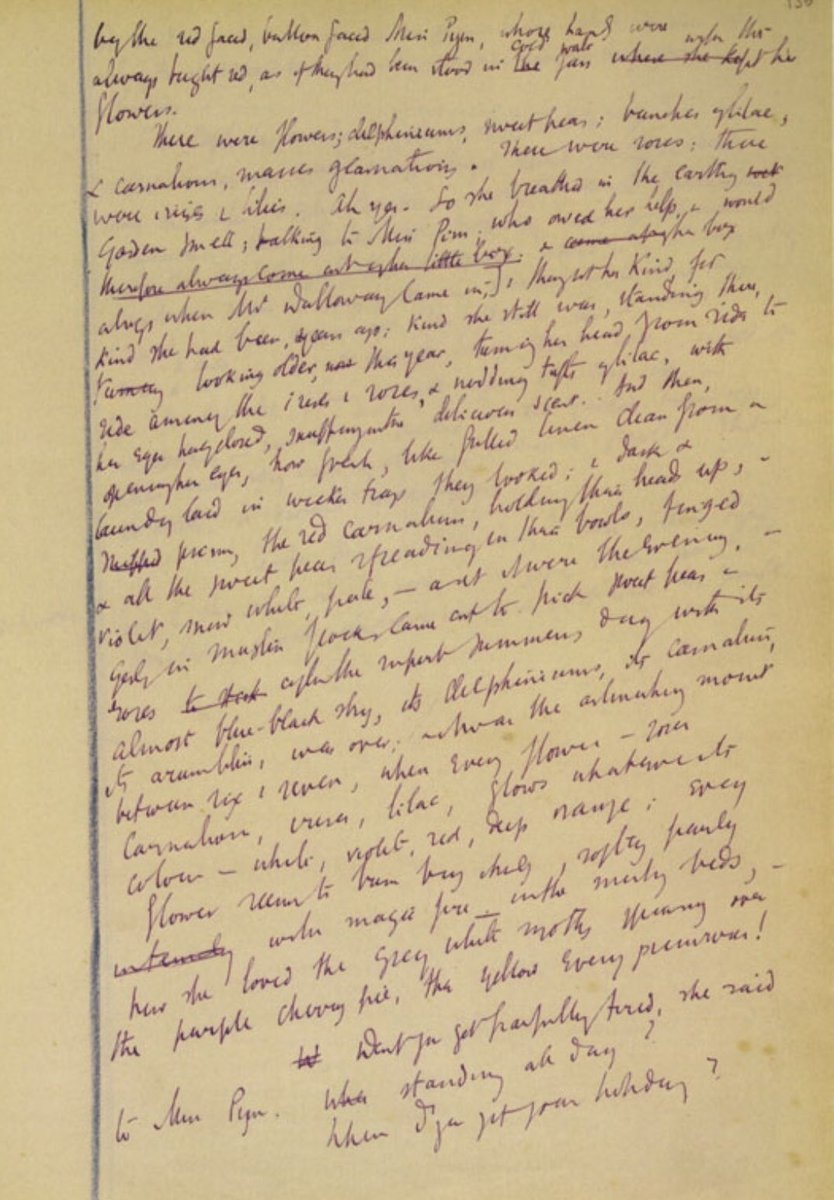 by the red faced, button faced Miss Pym, whose hands were
always bright red, as if they had been stood in cold water the jars where she kept her
flowers.
There were flowers; delphiniums, sweet peas; bunches of lilac,
& carnations, masses of carnations. There were roses; there
were irises & lilies. Ah yes. So she breathed in the earthy
garden smell; talking to Miss Pym, who owed her help, & would
therefore always come out of her little box.
always when Mrs Dalloway came in; thought her kind, for
kind she had been, years ago; kind she still was, standing there,
looking older, this year, turning her head from side to
side among the irises & roses, & nodding tufts of lilac, with
her eyes half closed, snuffing in the delicious scent. And then,
opening her eyes, how fresh, like frilled linen clean from a
laundry laid in wicker trays they looked; & dark &
prim, the red carnations, holding their heads up, -
& all the sweet peas spreading in their bowls, tinged
violet, snow white, pale, - as if it were the evening, -
girls in muslin frocks came out to pick sweet peas &
roses after the superb summers day with its
almost blue-black sky, its delphiniums, its carnations,
its arum lilies, was over; & it was the moment
between six & seven, when every flower - roses
carnations, irises, lilac, glows whatever its
colour - white, violet, red, deep orange; every
flower seems to burn by itself, softly purely
with magic fire in the misty beds, -
how she loved the grey white moths spinning over
the purple cherry pie, the yellow evening primroses!
Don't you get frightfully tired, she said
to Miss Pym. standing all day?
When d'you get your holiday?